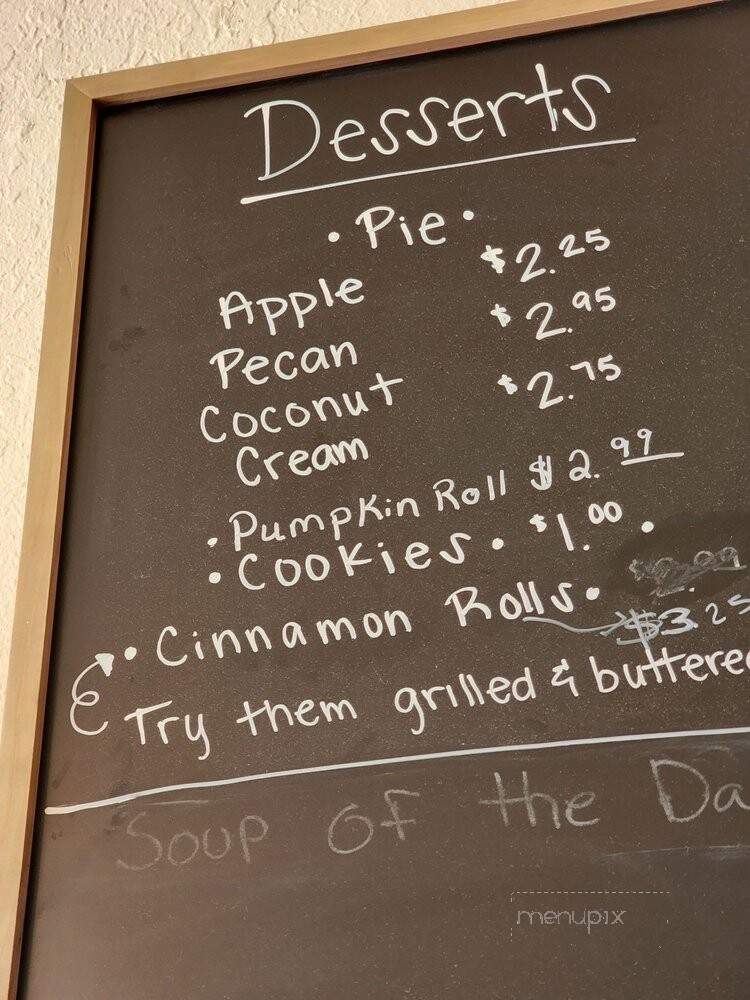 Desserts
• Pie •
Apple $2.25
Pecan $2.95
Coconut $2.75
Cream
• Pumpkin Roll $2.99
• Cookies • $1.00 •
• Cinnamon Rolls •
$3.25
Try them grilled & buttered
Soup of the Da
menupix